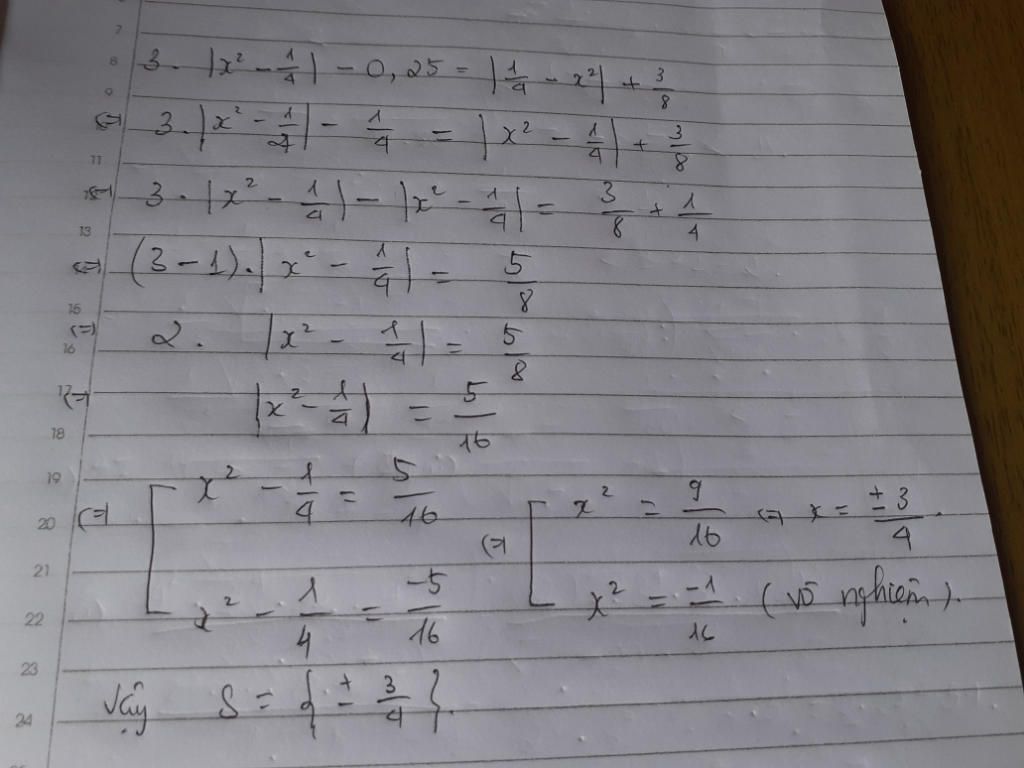 7
8 3. |x² - 1/4| - 0,25 = |1/4 - x²| + 3/8
9
(=) 3. |x² - 1/4| - 1/4 = |x² - 1/4| + 3/8
11
(=) 3. |x² - 1/4| - |x² - 1/4| = 3/8 + 1/4
13
(=) (3 - 1). |x² - 1/4| = 5/8
15
(=) 2. |x² - 1/4| = 5/8
16
17 (=) |x² - 1/4| = 5/16
18
19 x² - 1/4 = 5/16
20 (=) [ (=) [ x² = 9/16 (=) x = ± 3/4.
21
22 x² - 1/4 = -5/16 x² = -1/16 (vô nghiệm).
23
24 Vậy S = {± 3/4}.